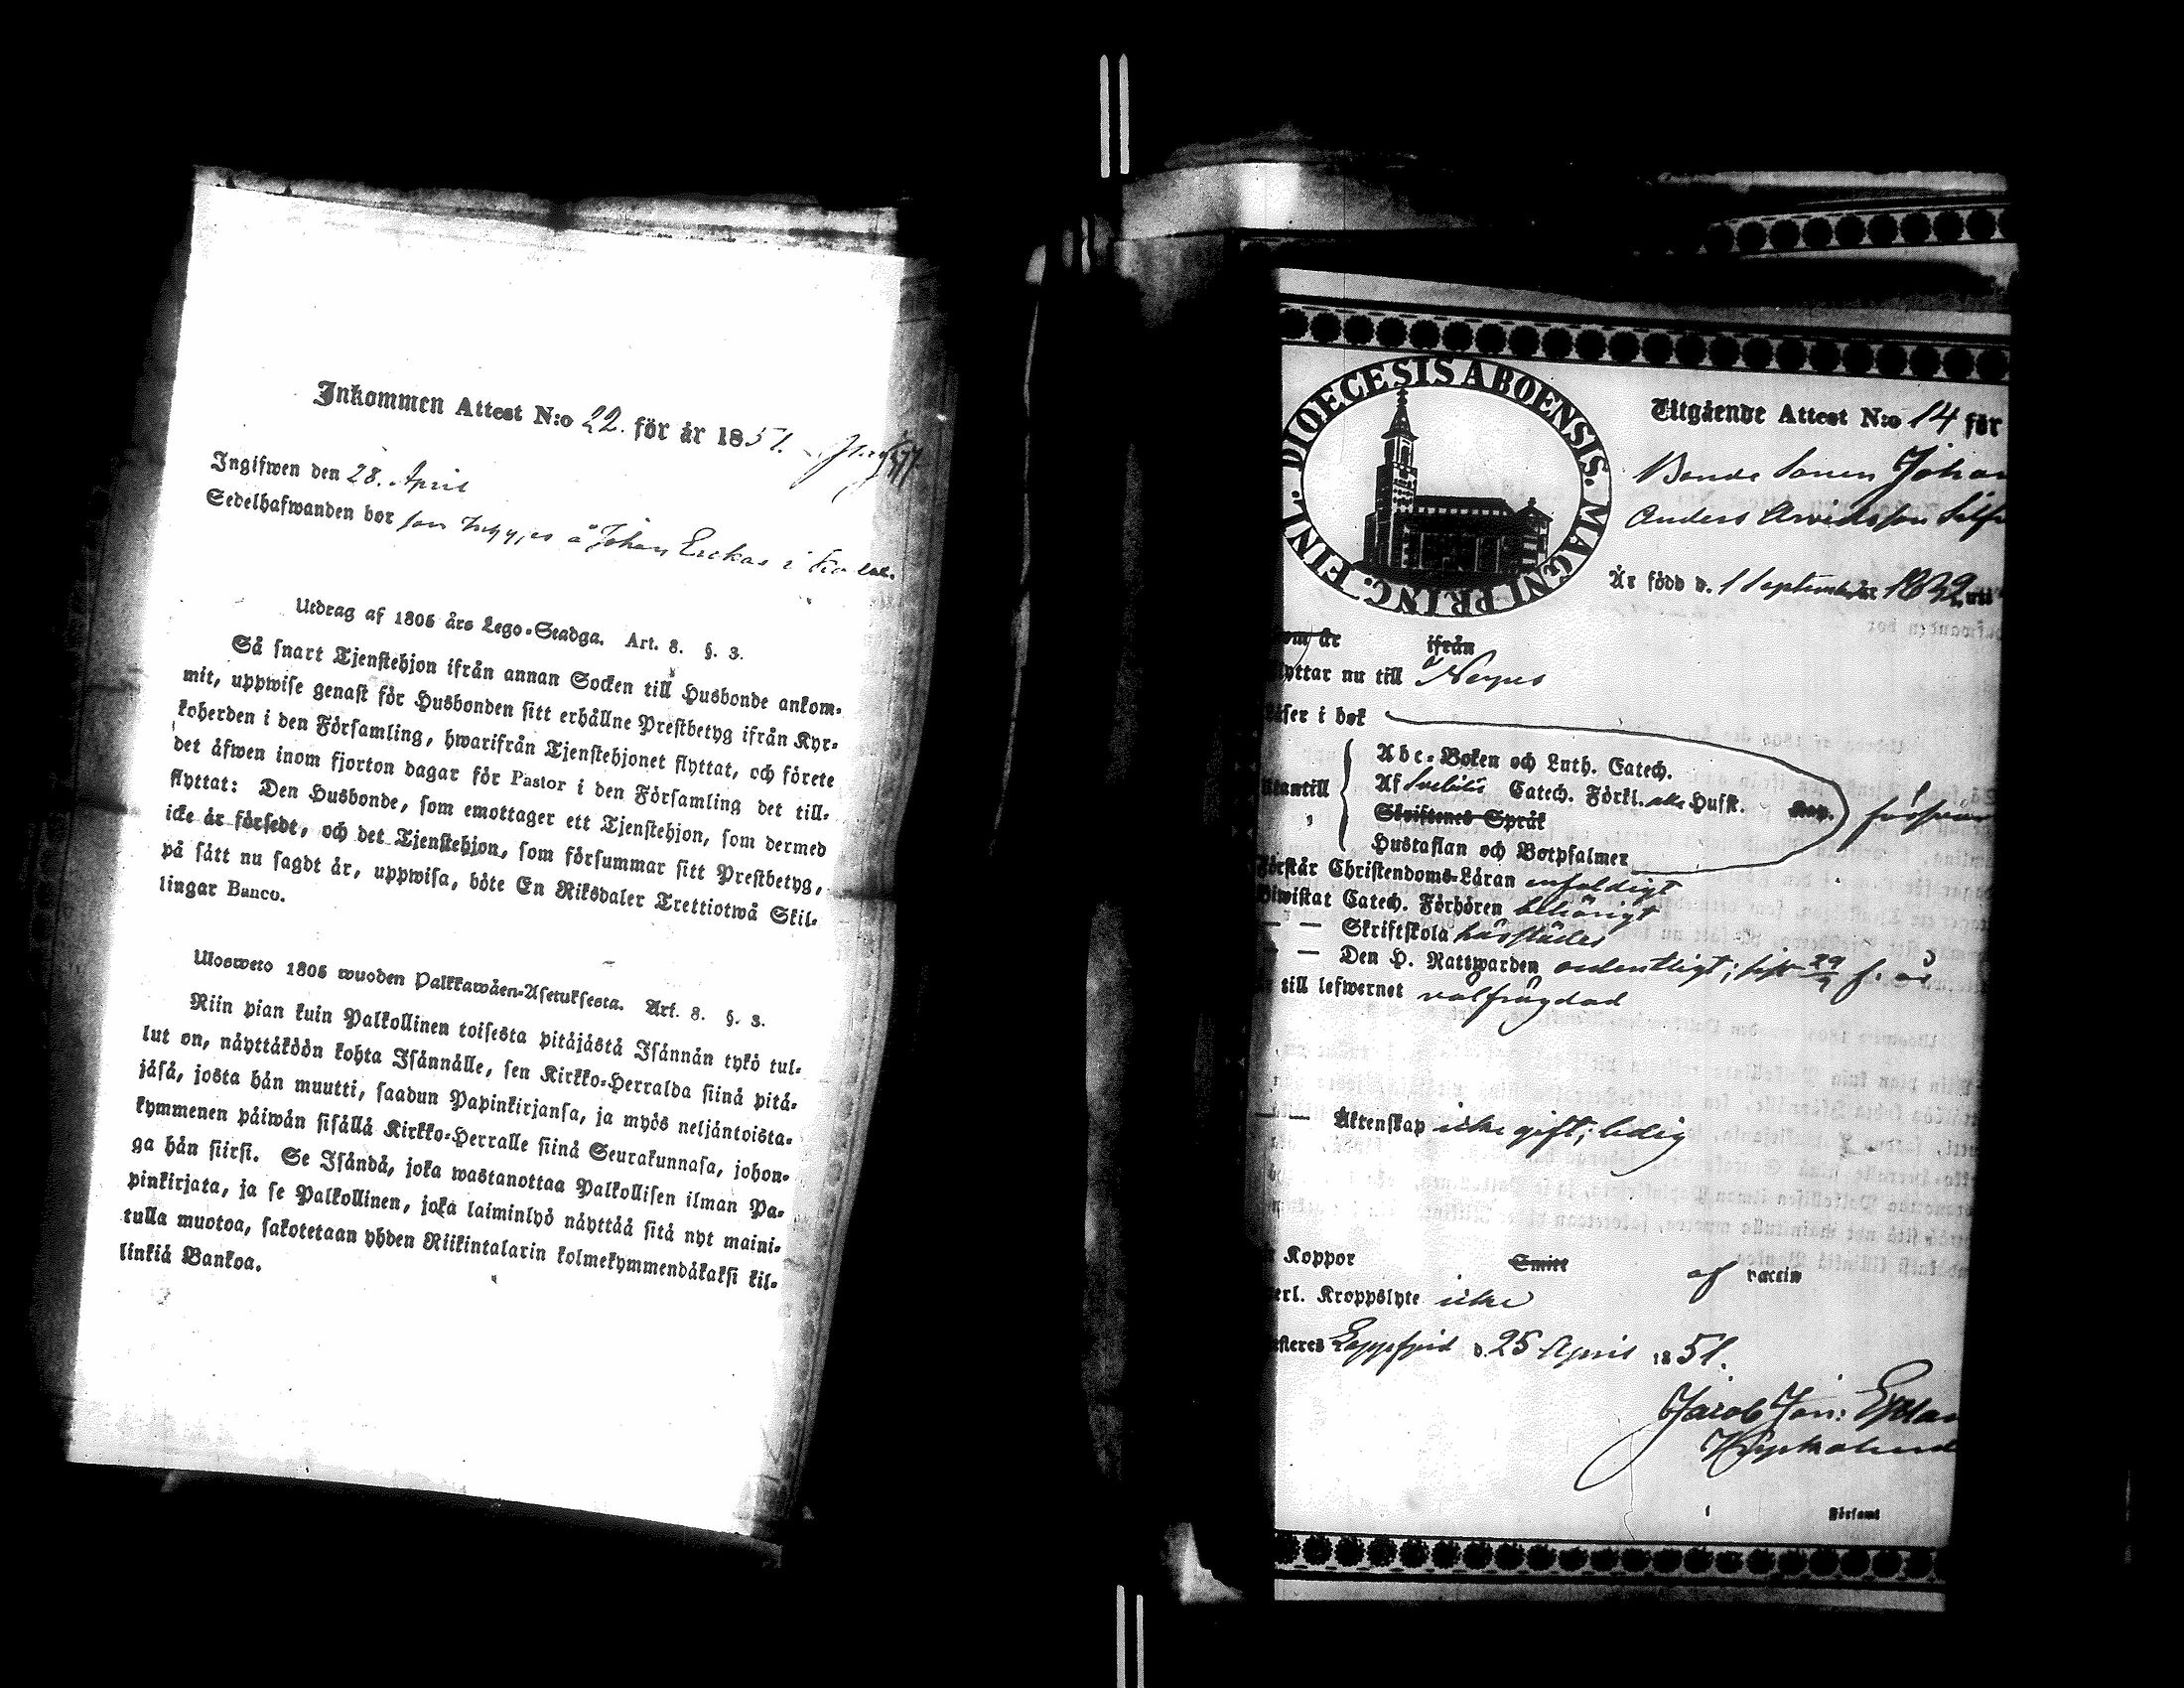 Inkommen Attest N:o 22. för år 1851.
Ingifwen den 28. April
Sedelhafwanden bor som å Johan Erckas i
Utdrag af 1805 års Lego-Stadga. Art. 8. §. 3.
Så snart Tjenstehjon ifrån annan Socken till Husbonde ankom-
mit, uppwise genast för Husbonden sitt erhållne Prestbetyg ifrån Kyr-
koherden i den Församling, hwarifrån Tjenstehjonet flyttat, och förete
det äfwen inom fjorton dagar för Pastor i den Församling det till-
flyttat: Den Husbonde, som emottager ett Tjenstehjon, som dermed
icke är försedt, och det Tjenstehjon, som försummar sitt Prestbetyg,
på sätt nu sagdt är, uppwisa, böte En Riksdaler Trettiotwå Skil-
lingar Banco.
Ulosweto 1805 wuoden Palkkawäen-Asetuksesta. Art. 8. §. 3.
Niin pian kuin Palkollinen toisesta pitäjästä Isännän tykö tul-
lut on, näyttäköön kohta Isännälle, sen Kirkko-Herralda siinä pitä-
jäsä, josta hän muutti, saadun Papinkirjansa, ja myös neljäntoista-
kymmenen päiwän sisällä Kirkko-Herralle siinä Seurakunnasa, johon-
ga hän siirsi. Se Isändä, joka wastanottaa Palkollisen ilman Pa-
pinkirjata, ja se Palkollinen, joka laiminlyö näyttää sitä nyt maini-
tulla muotoa, sakotetaan yhden Riikintalarin kolmekymmendäkaksi kil-
linkiä Bankoa.
DIOECESIS ABOENSIS. MAGNI PRINC. FINL.
Utgående Attest N:o 14 för
Bonde Sonen Johan
Anders Arvidsson
Är född d. 1 September 1832
om år ifrån
flyttar nu till Nerpes
Läser i bok
Abc-Boken och Luth. Catech.
Utantill Af Svebilii Catech. Förkl. Husst.
Skriftenes Språk
Hustaflan och Botpsalmer
Förstår Christendoms-Läran enfaldigt
Biwistat Catech. Förhören behörigt
— — Skriftskola härstädes
— — Den H. Nattwarden ordentligt; sist 29/9 f. å
till lefwernet välfrägdad
— — Äktenskap icke gift; ledig
Koppor Smitt af vaccin
erl. Kroppslyte icke
Lappfjerd d. 25 April 1851.
Jacob Joh:
Kyrkoherde
i Församl